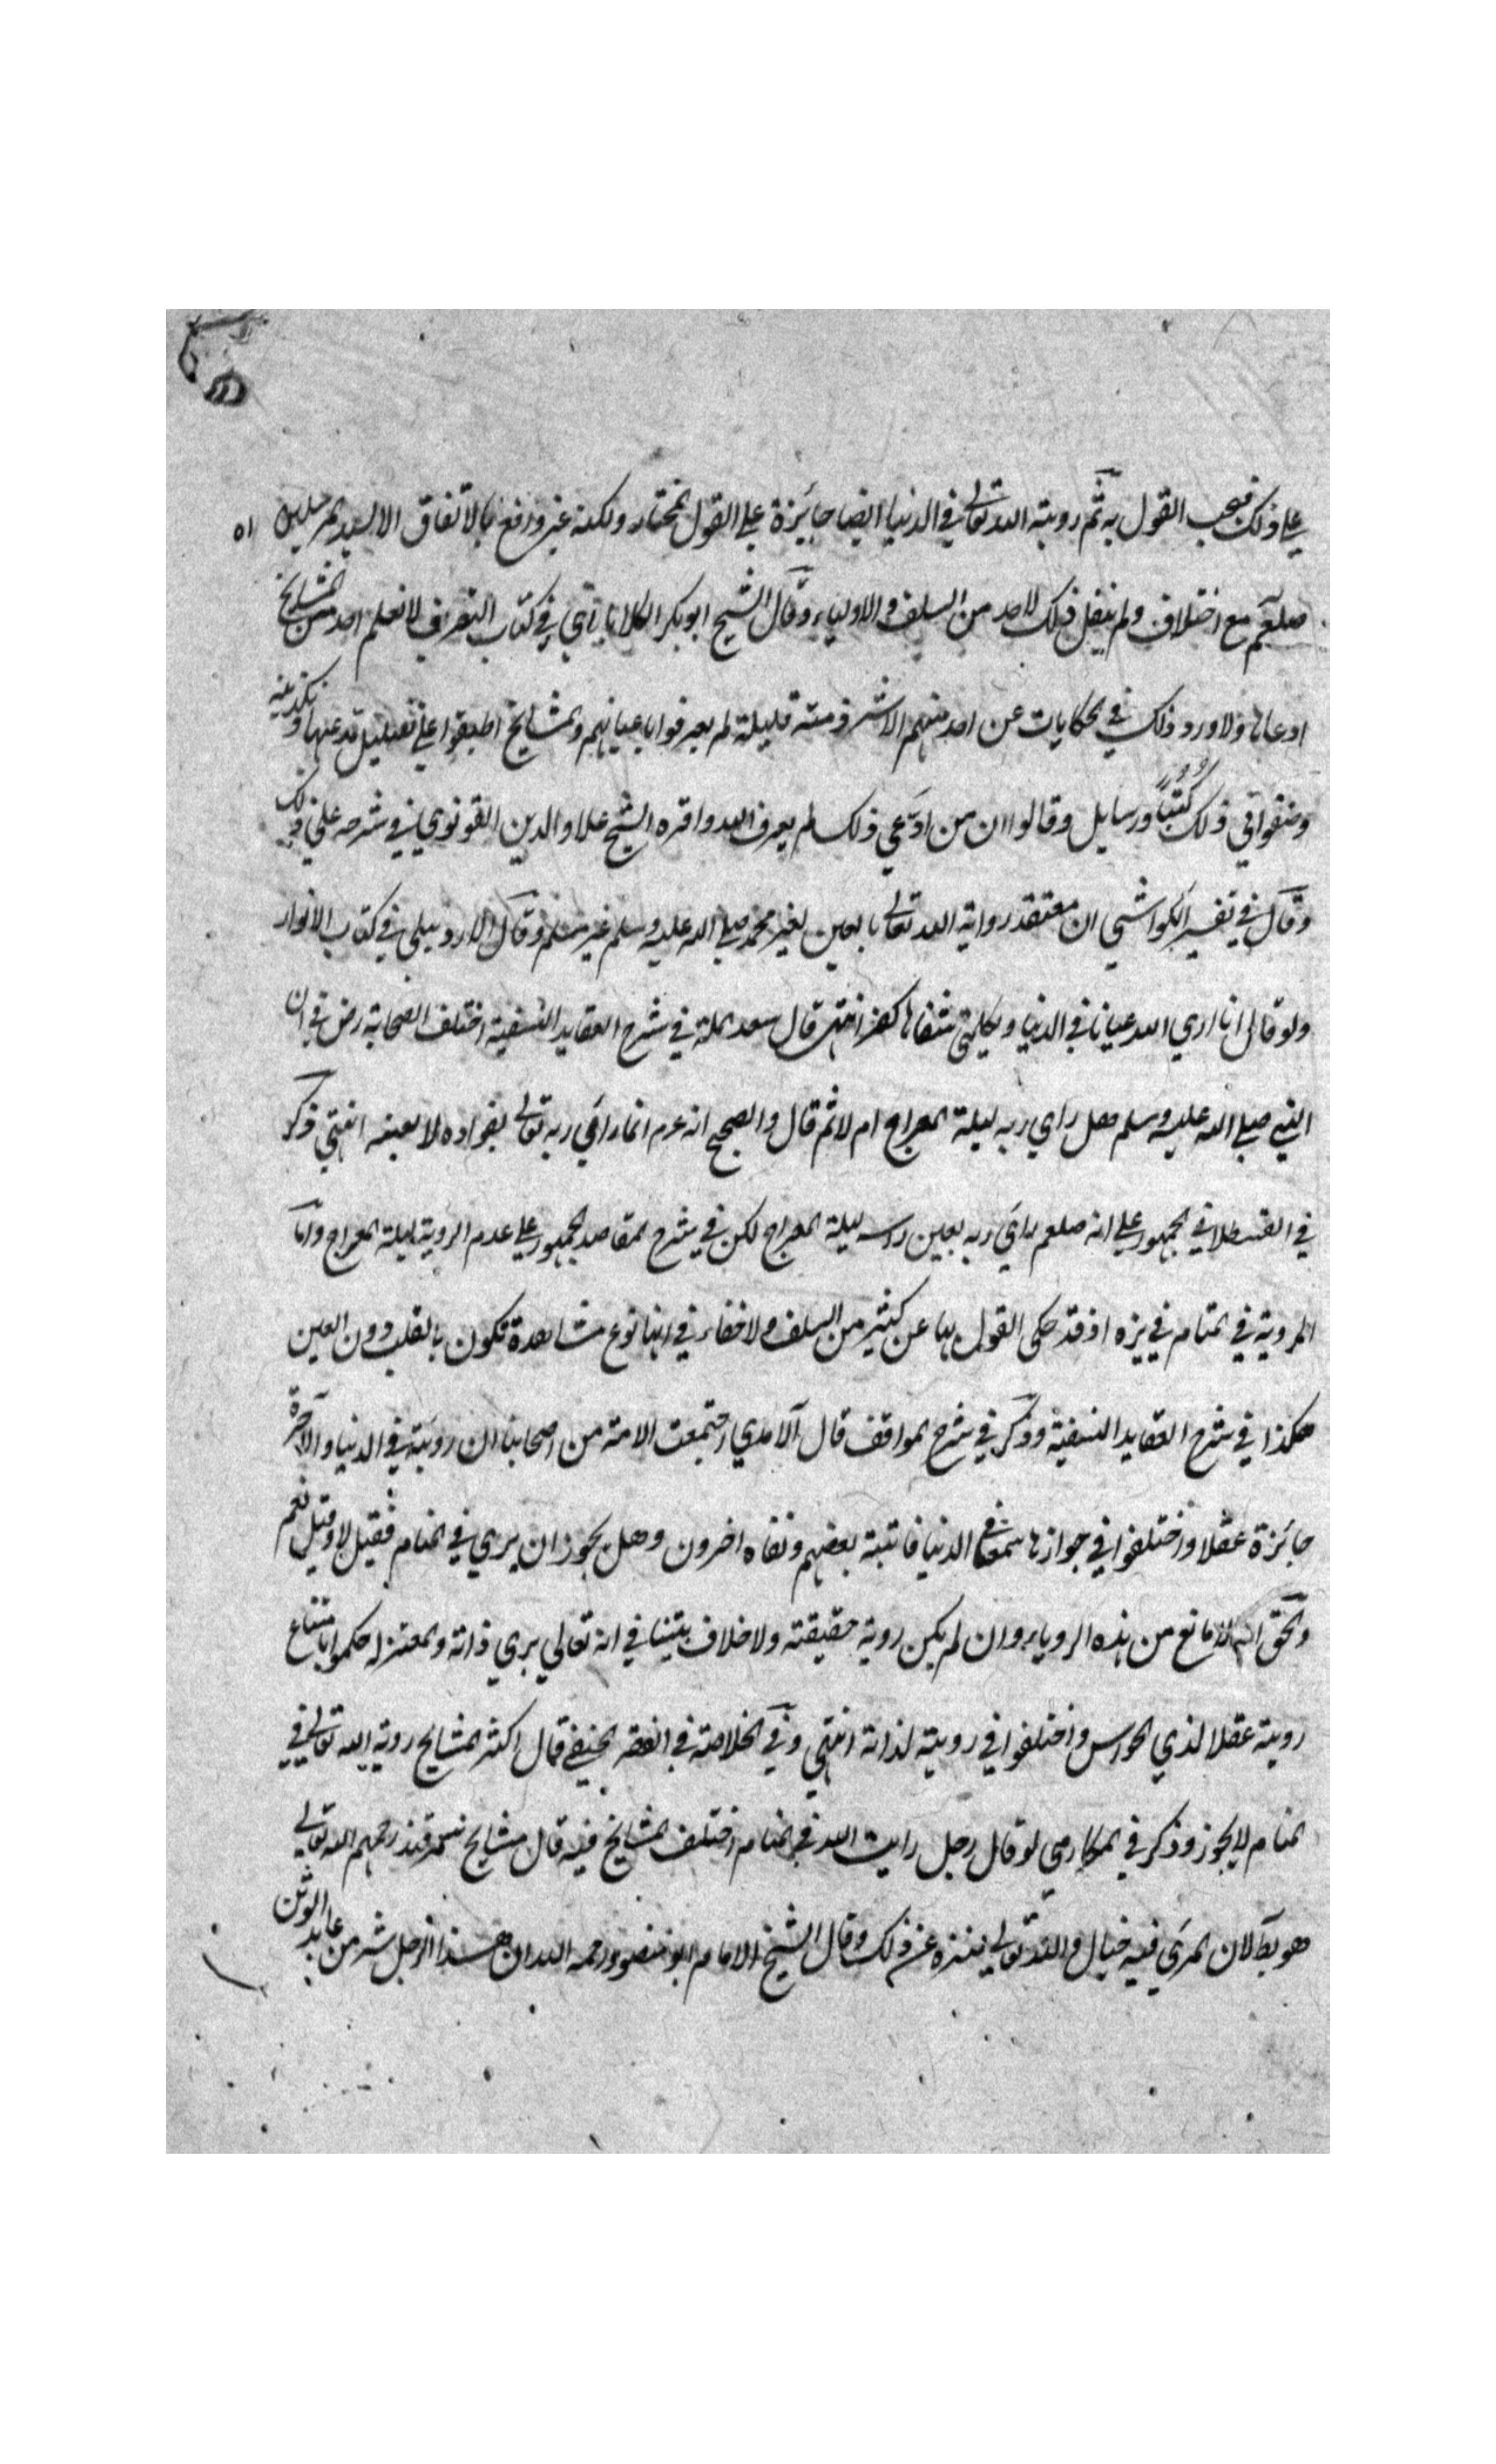 علي ذلك فيجب القول به ثم روية الله تعالي في الدنيا ايضا جائزة علي القول المختار ولكنه غير واقع بالاتفاق الا لسيد المرسلين ٥١
صلعم مع اختلاف ولم ينقل ذلك لاحد من السلف والاولياء وقال الشيخ ابو بكر الكلاباذي في كتاب التعرف لا نعلم احد من المشايخ
ادعاها ولا ورد ذلك في الحكايات عن احد منهم الا شرذمة قليلة لم يعرفوا باعيانهم والمشايخ اطبقوا علي تضليل قد عنها و تكذيبه
وصنفوا في ذلك كتبا ورسايل وقالوا ان من ادعي ذلك لم يعرف الله واقره الشيخ علاو الدين القونوي في شرحه علي ذلك
وقال في تفسير الكواشي ان معتقد رواية الله تعالي بالعين لغير محمد صلي الله عليه وسلم غير مسلم وقال الاردبيلي في كتاب الانوار
ولو قال انا اري الله عيانا في الدنيا ويكلمني شفاها كفر انتهي قال سعد الملة في شرح العقايد النسفية اختلف الصحابة رض في ان
النبي صلي الله عليه وسلم هل راي ربه ليلة المعراج ام لا ثم قال والصحيح انه عم انما راي ربه تعالي بفواده لا بعينه انتهي ذكر
في القسطلاني الجمهور علي انه صلعم راي ربه بعين راسه ليلة المعراج لكن في شرح المقاصد الجمهور علي عدم الروية ليلة المعراج واما
الروية في المنام في يزه اذ قد حكي القول بها عن كثير من السلف ولا خفاء في انها نوع مشاهدة تكون بالقلب دون العين
هكذا في شرح العقايد النسفية وذكر في شرح المواقف قال الآمدي اجتمعت الامة من اصحابنا ان رويته في الدنيا والآخرة
جائزة عقلا واختلفوا في جوازها سمعا في الدنيا فاثبته بعضهم ونفاه اخرون وهل يجوز ان يري في المنام فقيل لا وقيل نعم
والحق انه لا مانع من هذه الروياء وان لم يكن روية حقيقته ولا خلاف بيننا في انه تعالي يري ذاته والمعتزله حكموا بامتناع
رويته عقلا لذي الحواس واختلفوا في رويته لذاته انتهي وفي الخلاصة في الفقه الحنفي قال اكثر المشايخ روية الله تعالي في
المنام لا يجوز وذكر في المكارمي لو قال رجل رايت الله في المنام اختلف المشايخ فيه قال مشايخ سمرقند رحمهم الله تعالي
هو بط لان المري فيه خيال والله تعالي منزه عن ذلك وقال الشيخ الامام ابو منصور رحمه الله ان هذا الرجل شر من عابد الوثن